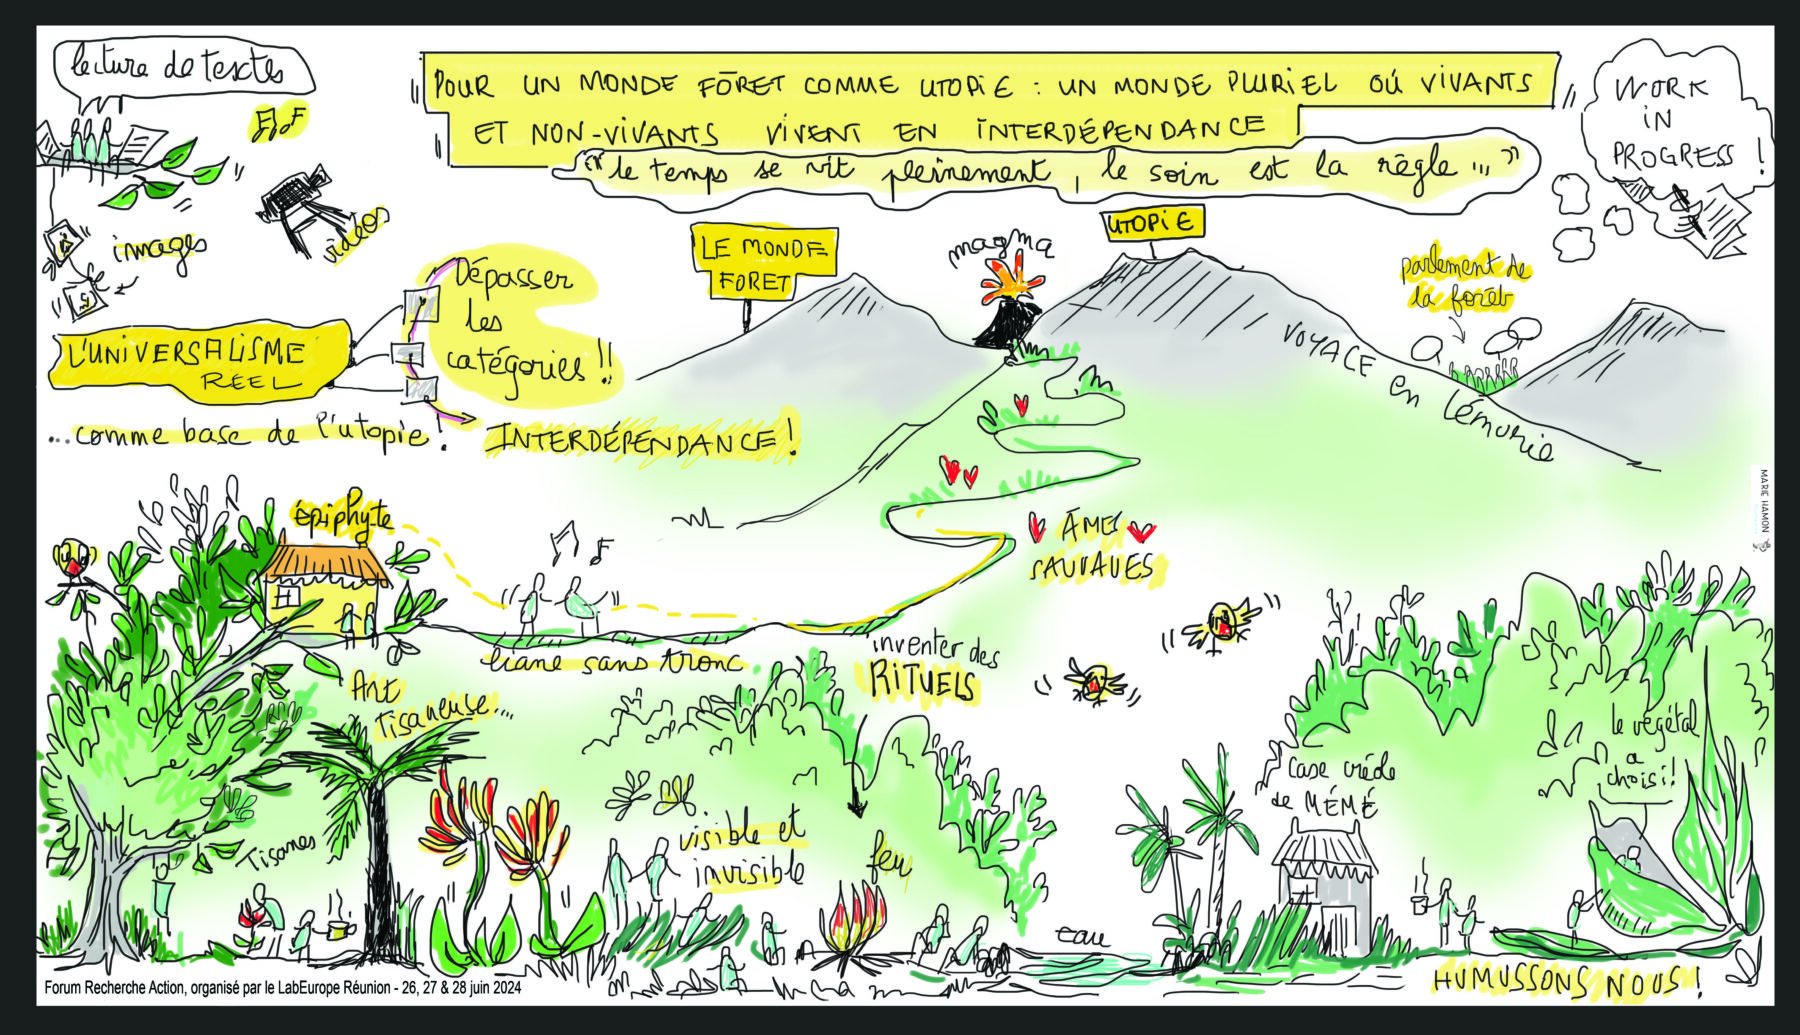 lecture de textes
POUR UN MONDE FÔRET COMME UTOPIE : UN MONDE PLURIEL OÚ VIVANTS
ET NON-VIVANTS VIVENT EN INTERDÉPENDANCE
"le temps se vit pleinement, le soin est la règle..."
WORK
IN
PROGRESS !
images
vidéos
LE MONDE
FORET
magma
UTOPIE
parlement de
la forêt
Dépasser
les
catégories !!
L'UNIVERSALISME
REEL
...comme base de l'utopie !
INTERDÉPENDANCE !
VOYAGE en Lémurie
MARIE HAMON
épiphyte
ÂMES
SAUVAGES
liane sans tronc
inventer des
RITUELS
Art
Tisaneuse...
Tisanes
visible et
invisible
feu
eau
Case créole
de MÉMÉ
le végétal
a
choisi !
HUMUSSONS NOUS !
Forum Recherche Action, organisé par le LabEurope Réunion - 26, 27 & 28 juin 2024